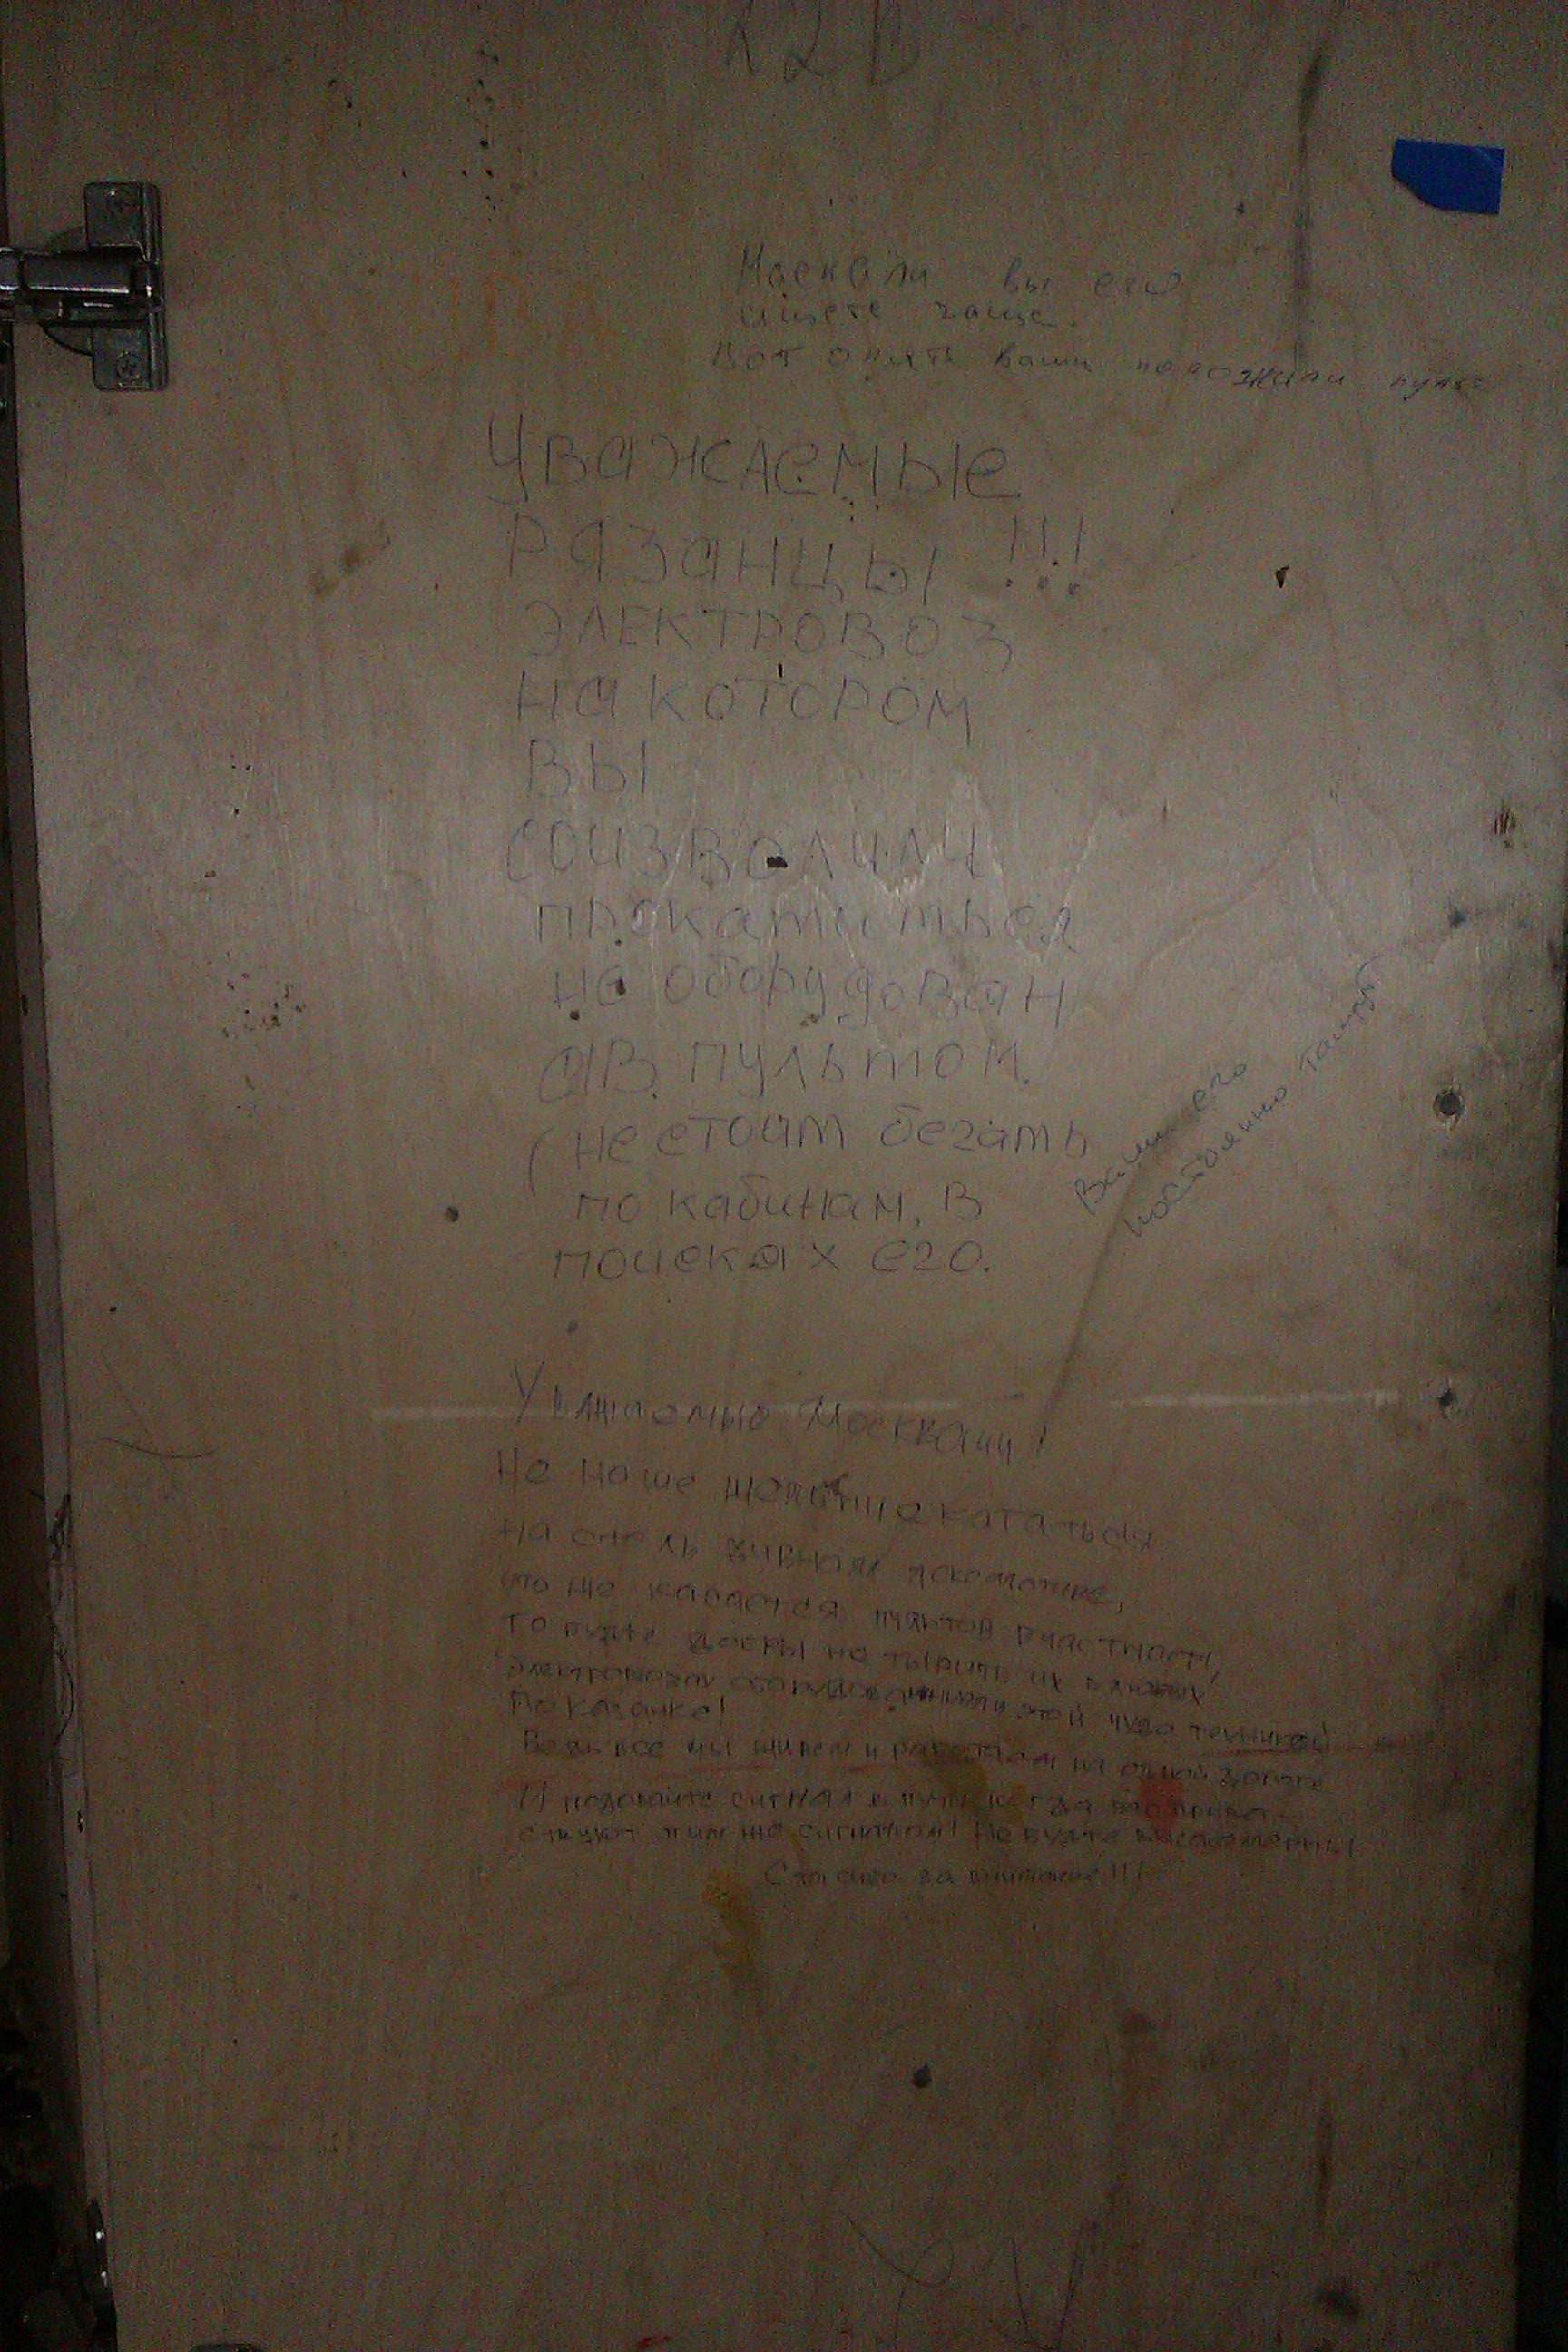 Москали вы его
ищете чаще.
Вот опять ваши положили пульт
Уважаемые
Рязанцы!!!
ЭЛЕКТРОВОЗ
На котором
ВЫ
соизволили
прокатиться
не оборудован
АВ. пультом.
(не стоит бегать
по кабинам, в
поисках его.
Ваши его
постоянно
Уважаемые Москвачи!
Не наше кататься
на столь дивном локомотиве,
что же касается пультов в частности,
то будте добры не их в
электровозах оборудованными этой чудо техникой
По казанке!
Ведь все мы живем и работаем на одной дороге
И подавайте сигнал в пути когда вас
этим же сигналом! Не будте высокомерны!
Спасибо за внимание!!!